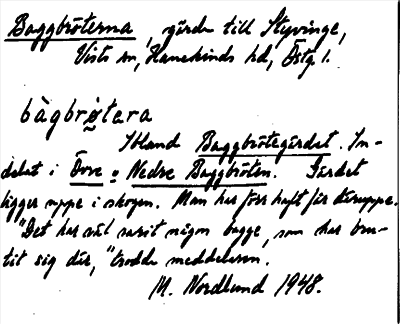 Baggbröterna, gärde till Styvinge,
Vists sn, Hanekinds hd, Östg. l.
bàgbrø̀tera
Ibland Baggbrötegärdet. In-
delat i Övre o Nedre Baggbröten. Gärdet
ligger uppe i skogen. Man har förr haft får däruppe.
"Det har väl varit någon bagge, som har bru-
tit sig där," trodde meddelaren.
M. Nordlund 1948.